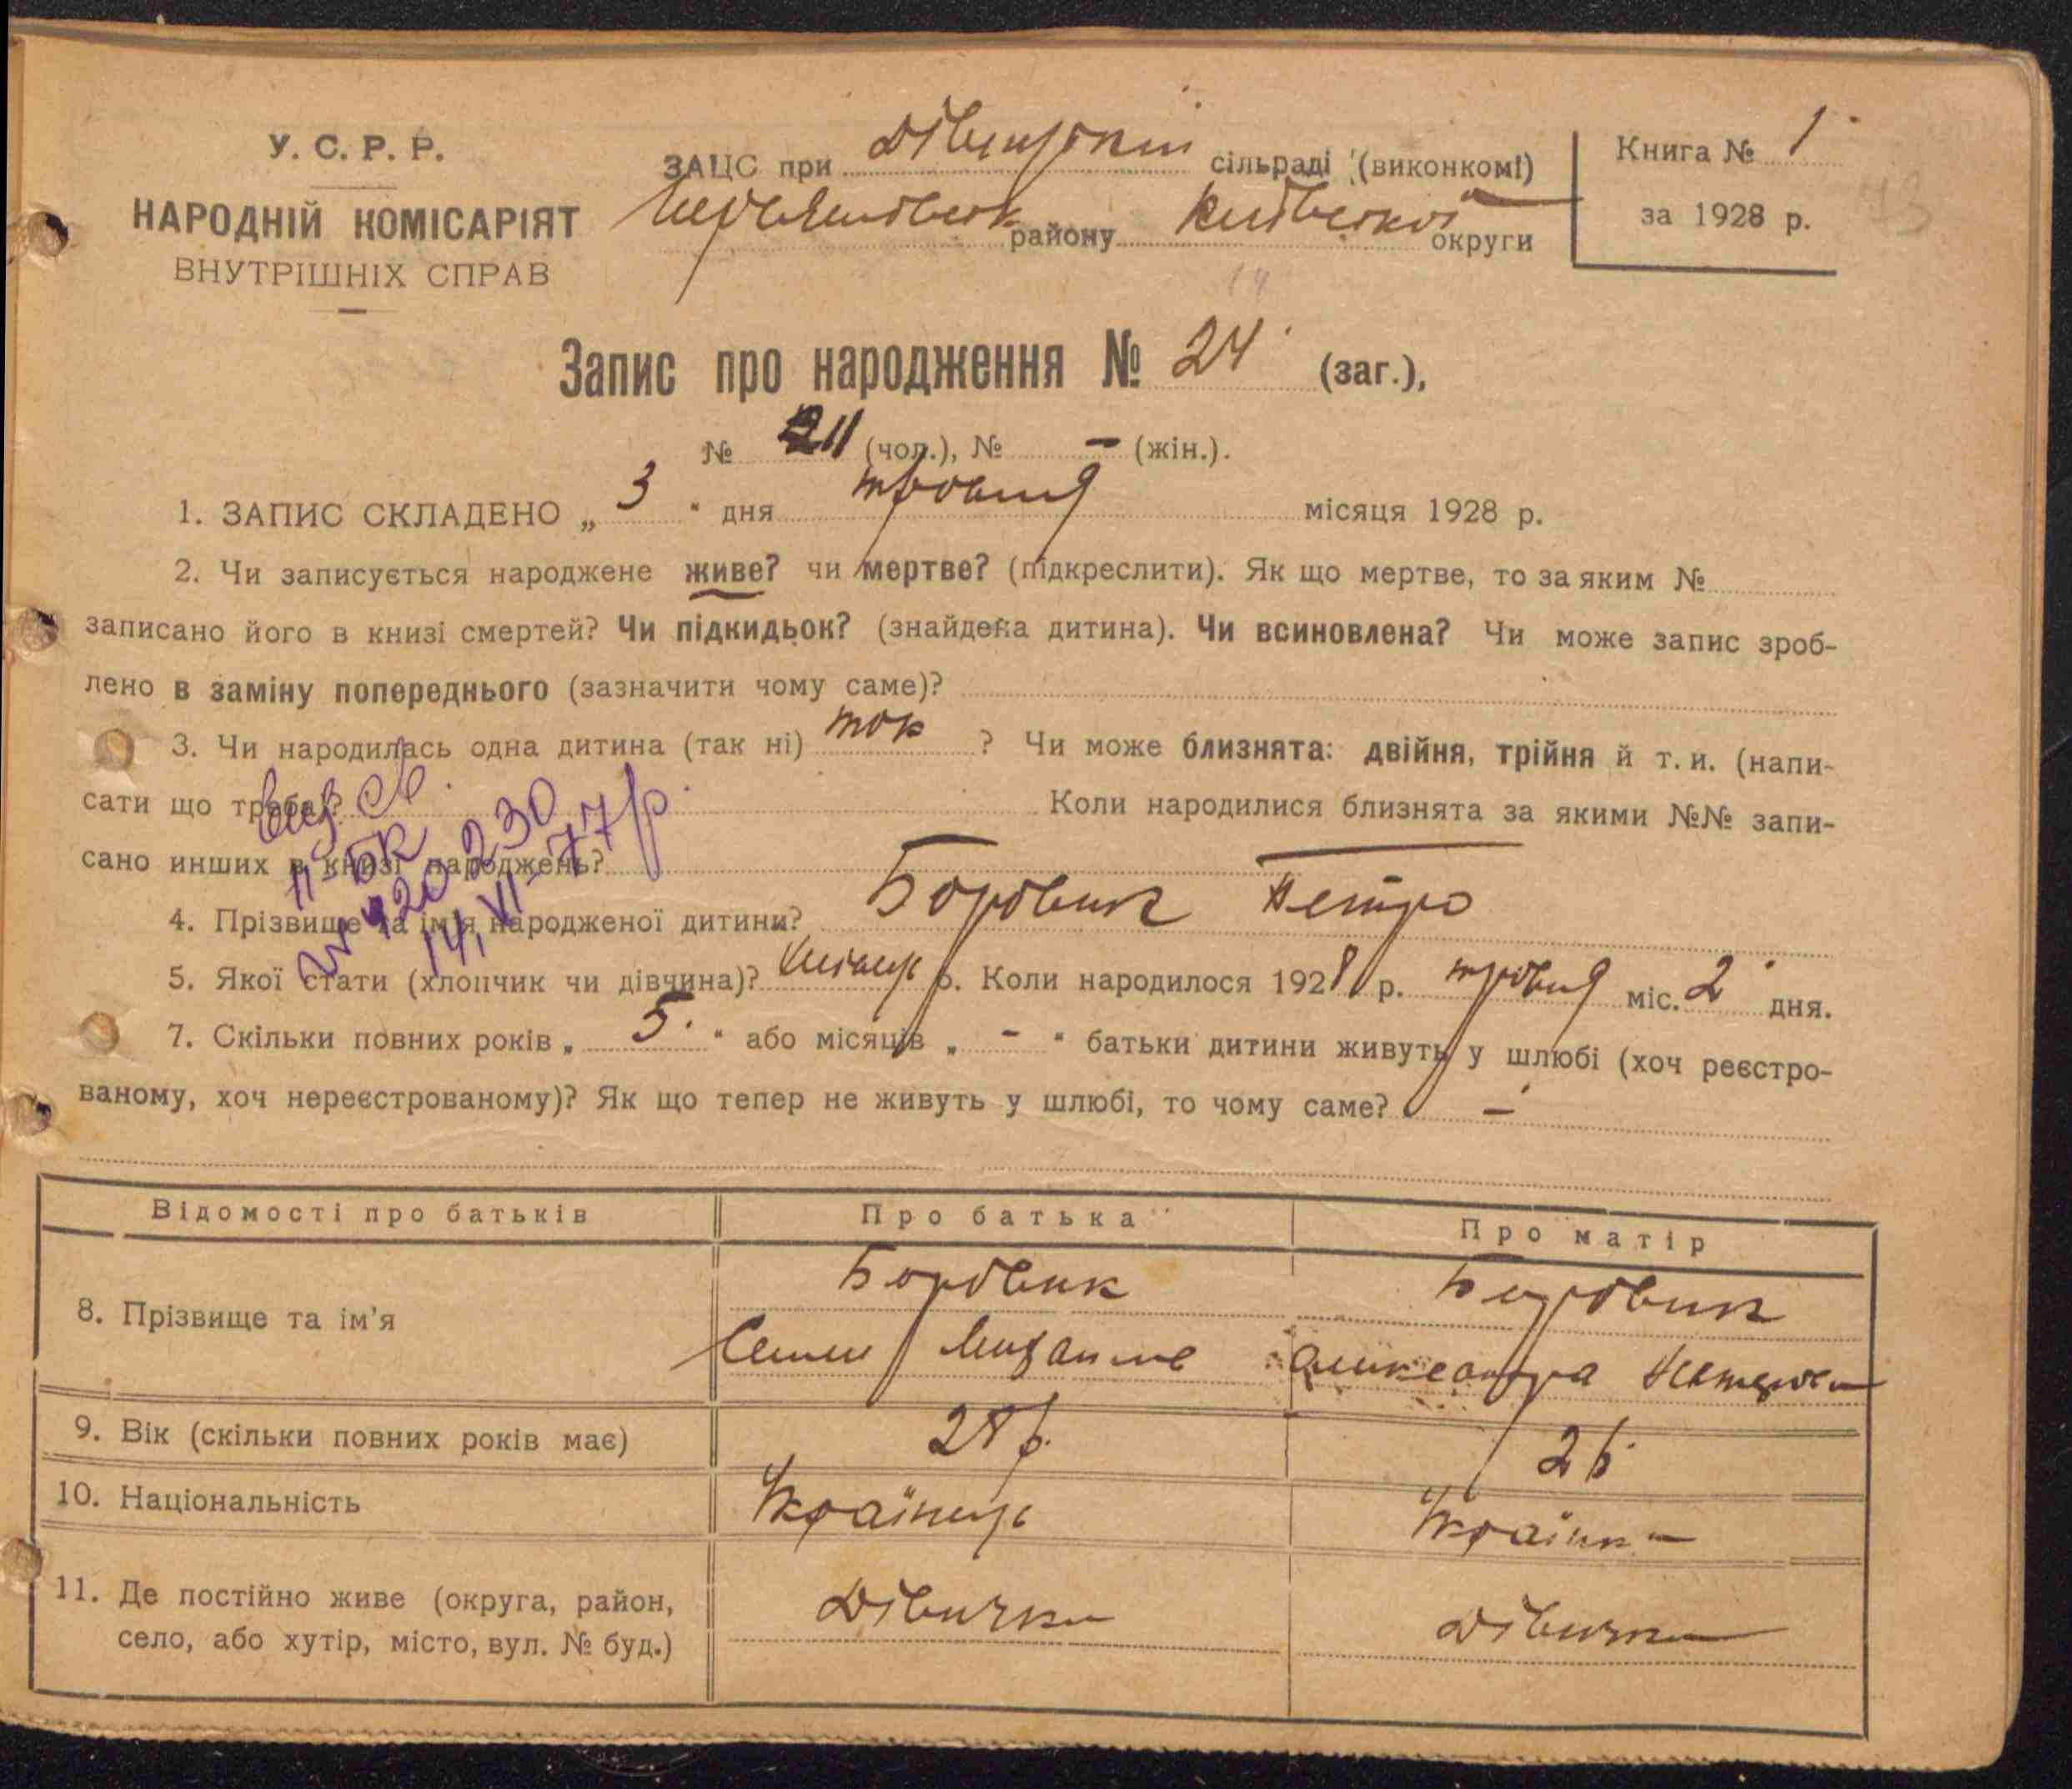 У. С. Р. Р.
НАРОДНІЙ КОМІСАРІЯТ
ВНУТРІШНІХ СПРАВ
ЗАЦС при Дівицькій сільраді (виконкомі)
району Київської округи
Книга № 1
за 1928 р.
Запис про народження № 24 (заг.),
№ 11 (чол.), № — (жін.).
1. ЗАПИС СКЛАДЕНО „ 3 “ дня травня місяця 1928 р.
2. Чи записується народжене живе? чи мертве? (підкреслити). Як що мертве, то за яким №
записано його в книзі смертей? Чи підкидьок? (знайдена дитина). Чи всиновлена? Чи може запис зроб-
лено в заміну попереднього (зазначити чому саме)?
3. Чи народилась одна дитина (так ні) так ? Чи може близнята: двійня, трійня й т. и. (напи-
сати що треба)? Коли народилися близнята за якими №№ запи-
сано инших в книзі народжень?
вид. св.
II-БК
№ 420230
14/VI-77р.
4. Прізвище та ім'я народженої дитини? Боровик Петро
5. Якої стати (хлопчик чи дівчина)? 6. Коли народилося 1928 р. травня міс. 2 дня.
7. Скільки повних років „ 5 “ або місяців „ — “ батьки дитини живуть у шлюбі (хоч реєстро-
ваному, хоч нереєстрованому)? Як що тепер не живуть у шлюбі, то чому саме? —
Відомості про батьків Про батька Про матір
8. Прізвище та ім'я Боровик Боровик
Семен Олександра
9. Вік (скільки повних років має) 28 р. 26
10. Національність Українець Українка
11. Де постійно живе (округа, район,
село, або хутір, місто, вул. № буд.) Дівички Дівички